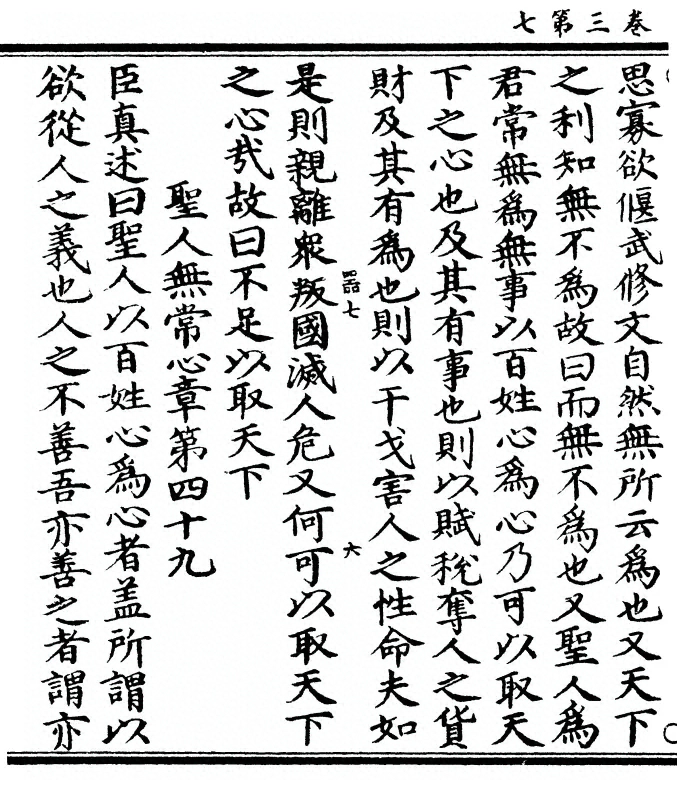 卷三第七
思寡欲偃武修文自然無所云為也又天下
之利知無不為故曰而無不為也又聖人為
君常無為無事以百姓心為心乃可以取天
下之心也及其有事也則以賦稅奪人之貨
財及其有為也則以干戈害人之性命夫如
噐七 六
是則親離衆叛國滅人危又何可以取天下
之心㢤故曰不足以取天下
聖人無常心章第四十九
臣真述曰聖人以百姓心為心者盖所謂以
欲從人之義也人之不善吾亦善之者謂亦